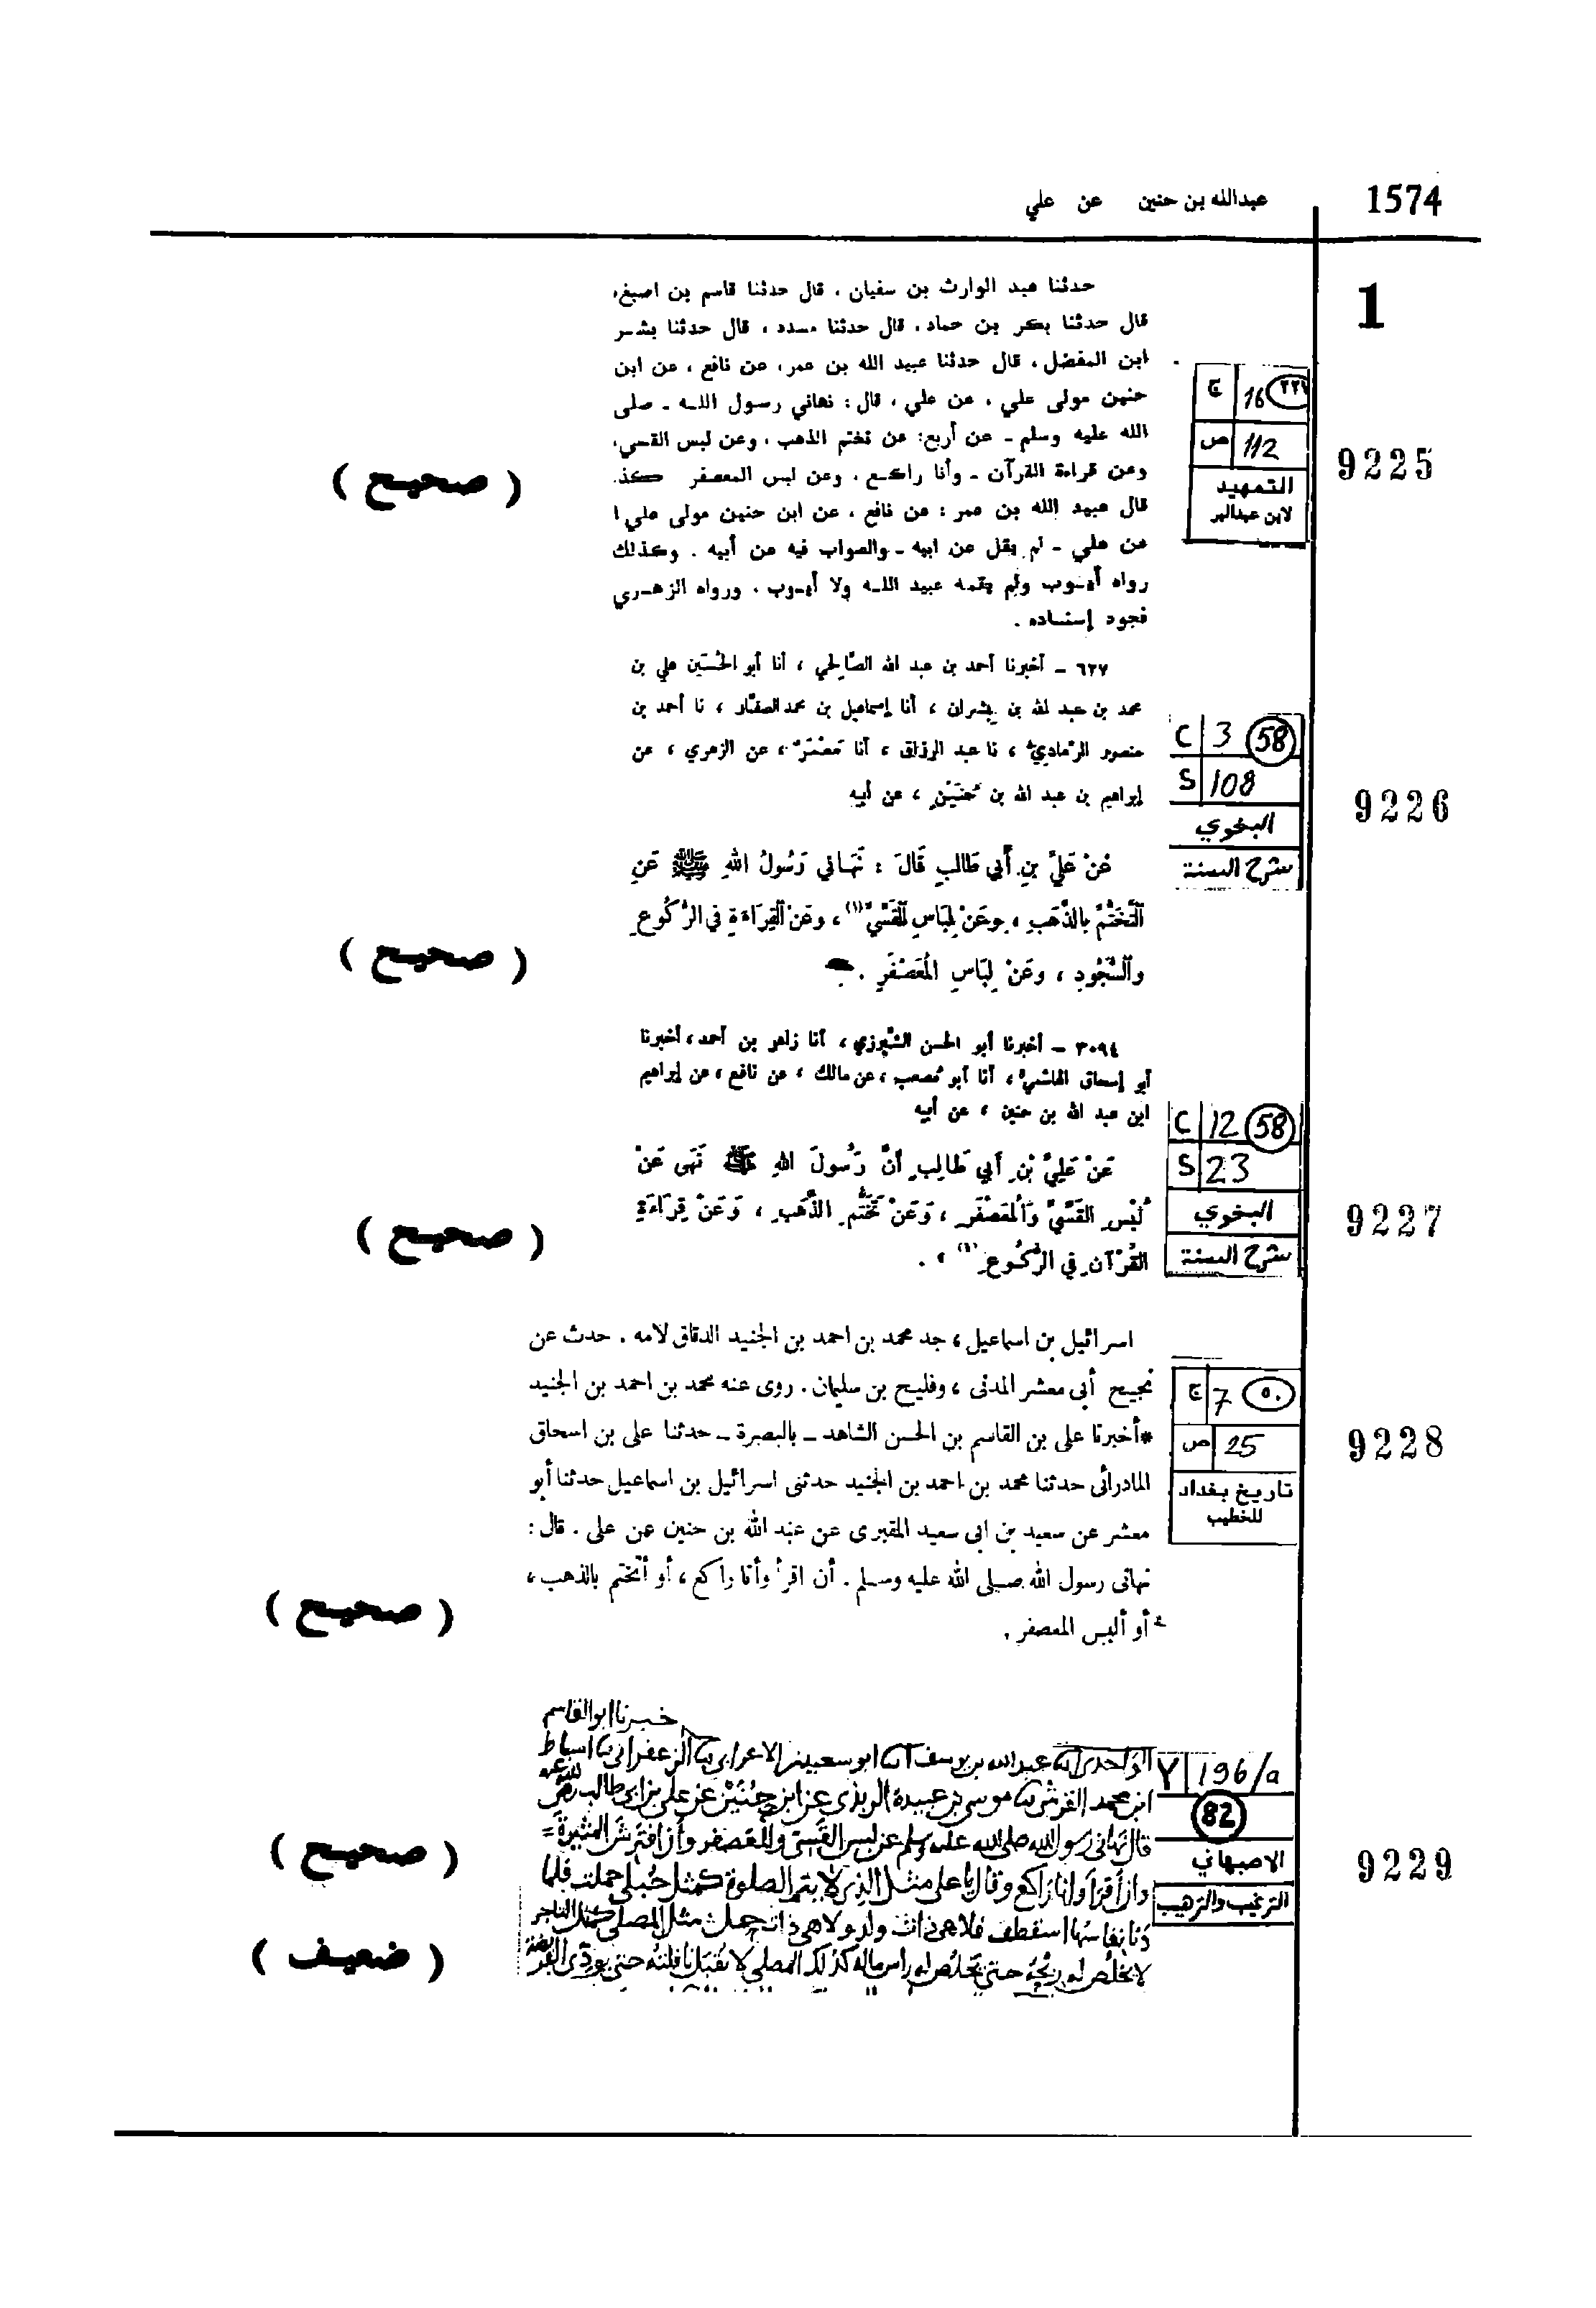 عبدالله بن حنين عن علي
1574
1
حدثنا عبد الوارث بن سفيان ، قال حدثنا قاسم بن اصبغ،
قال حدثنا بكر بن حماد، قال حدثنا مسدد ، قال حدثنا بشر
ابن المفضل ، قال حدثنا عبيد الله بن عمر، عن نافع ، عن ابن
حنين مولى علي ، عن علي ، قال : نهاني رسول الله - صلى
الله عليه وسلم - عن أربع: عن تختم الذهب ، وعن لبس القسي،
وعن قراءة القرآن - وأنا راكع ، وعن لبس المعصفر كذ.
قال عبيد الله بن عمر : عن نافع ، عن ابن حنين مولى علي ا
عن علي - لم يقل عن ابيه - والصواب فيه عن أبيه . وكذلك
رواه أيوب ولم يقمه عبيد الله ولا أيوب ، ورواه الزهري
فجود إسناده .
ج 16 ٢٢٧
ص 112
التمهيد
لابن عبدالبر
9225
( صحيح )
٦٢٧ – أخبرنا أحمد بن عبد الله الصَّالحي ، أنا أبو الحُسَين علي بن
محمد بن عبد لله بن بِشران ، أنا إسماعيل بن محمد الصفَّار ، نا أحمد بن
منصور الرَّمادي ، نا عبد الرزاق ، أنا مَعْمَرٌ ، عن الزهري ، عن
إبراهيم بن عبد الله بن حُنَيْنٍ ، عن أبيه
عَنْ عَليِّ بنِ أَبي طَالبٍ قَالَ : نَهَاني رَسُولُ اللهِ ﷺ عَنِ
التَّخَتُّمِ بالذَّهَبِ ، وعَنْ لِبَاسِ القَسِّيِّ (١) ، وعَنْ القِرَاءَةِ في الرُّكُوعِ
والسُّجُودِ ، وعَنْ لِبَاسِ المُعَصْفَرِ .
C 3 58
S 108
البغوي
شرح السنة
9226
( صحيح )
٣٠٩٤ – أخبرنا أبو الحسن الشِّيرزي ، أنا زاهر بن أحمد ، أخبرنا
أبو إسحاق الهاشميُّ ، أنا أبو مُصعب ، عن مالك ، عن نافع ، عن إبراهيم
ابن عبد الله بن حنين ، عن أبيه
عَنْ عَلِيِّ بْنِ أَبي طَالِبٍ أَنَّ رَسُولَ اللهِ ﷺ نَهَى عَنْ
لُبْسِ القَسِّيِّ وَالْمُعَصْفَرِ ، وَعَنْ تَخَتُّمِ الذَّهَبِ ، وَعَنْ قِرَاءَةِ
القُرْآنِ في الرُّكُوعِ (١) » .
C 12 58
S 23
البغوي
شرح السنة
9227
( صحيح )
اسرائيل بن اسماعيل ، جد محمد بن احمد بن الجنيد الدقاق لأمه . حدث عن
نجيح أبى معشر المدنى ، وفليح بن سليمان . روى عنه محمد بن احمد بن الجنيد
*أخبرنا على بن القاسم بن الحسن الشاهد – بالبصرة – حدثنا على بن اسحاق
المادرائى حدثنا محمد بن احمد بن الجنيد حدثنى اسرائيل بن اسماعيل حدثنا أبو
معشر عن سعيد بن ابى سعيد المقبرى عن عبد الله بن حنين عن على . قال :
نهانى رسول الله صلى الله عليه وسلم . أن اقرأ وأنا راكع ، أو أتختم بالذهب ،
أو ألبس المعصفر .
ج 7 ٥٠
ص 25
تاريخ بغداد
للخطيب
9228
( صحيح )
خبرنا ابوالقاسم
الواحدى عبدالله بن يوسف ابو سعيد بن الاعرابى الزعفرانى اسباط
ابن محمد القرشى موسى بن عبيدة الربذى عن ابن حُنَيْن عن على بن ابى طالب رضى الله عنه
قال نهانى رسول الله صلى الله عليه وسلم عن لبس القسى والمعصفر وأن افترش الميثرة
وان أقرأ وانا راكع وقال يا على مثل الذى لا يتم الصلوة كمثل حُبلى حملت فلما
دنا نفاسها اسقطت فلا هى ذات ولد ولا هى ذات حمل مثل المصلى كمثل التاجر
لا يخلص له ربحه حتى يخلص له راس ماله كذلك المصلى لا تقبل نافلته حتى يودى الفريضة
Y 196/a
82
الاصبهاني
الترغيب والترهيب
9229
( صحيح )
( ضعيف )